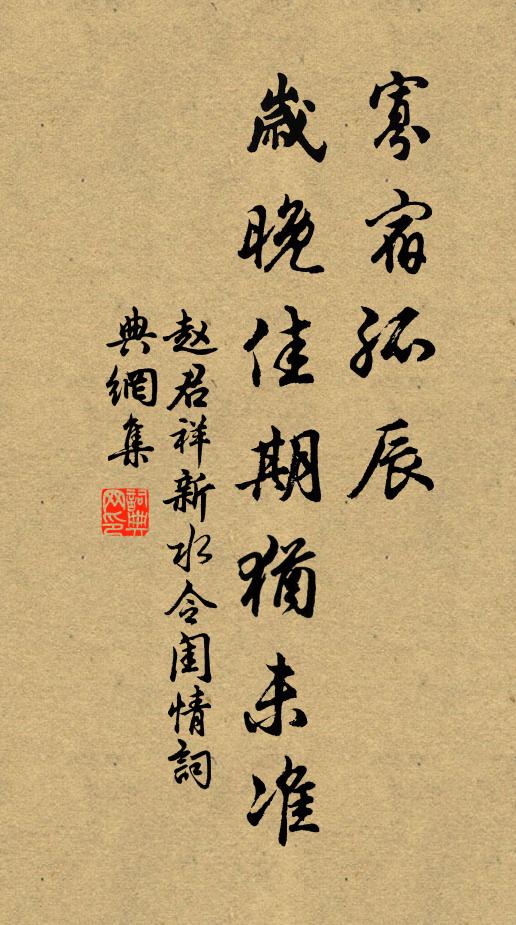 寡宿孤辰
歲晚佳期猶未准
赵君祥新水令闺情詞
典網集
詞典网印